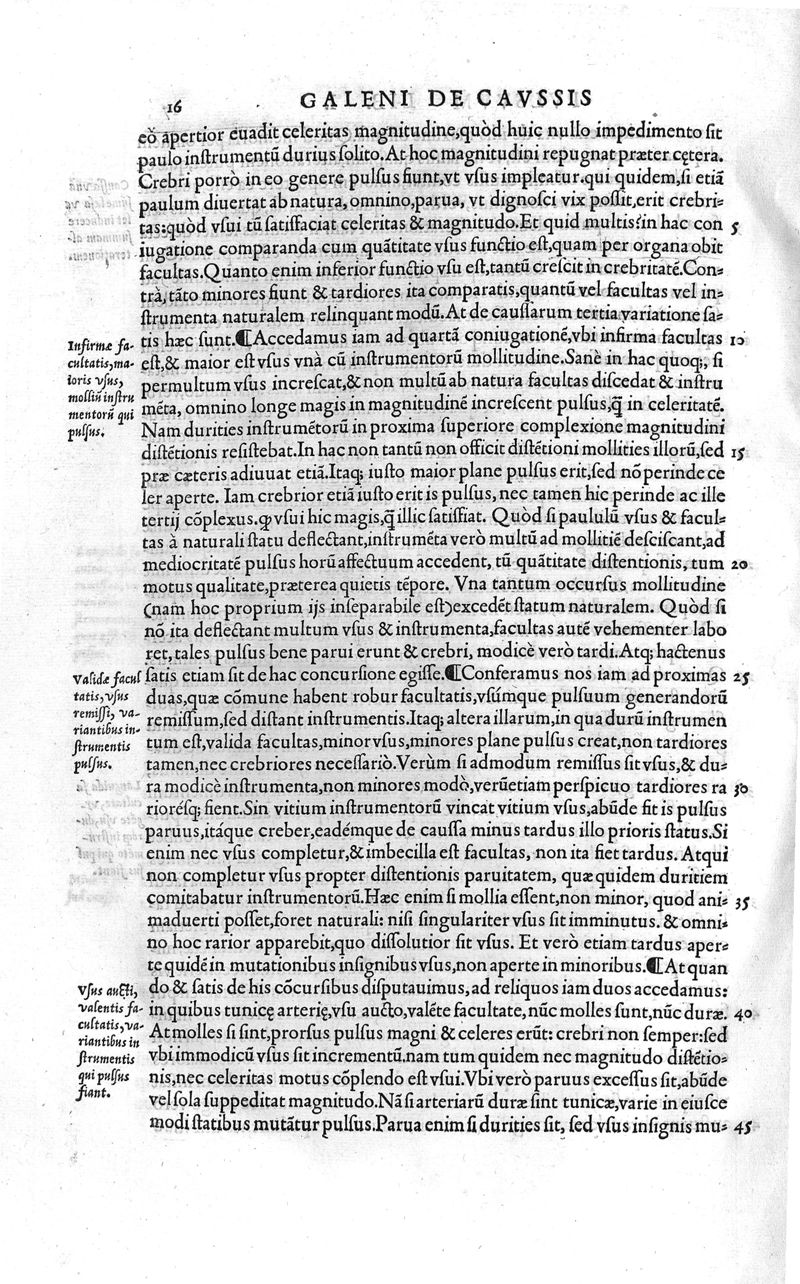 16
GALENI DE CAVSSIS
eò apertior euadit celeritas magnitudine,quòd huic nullo impedimento sit
paulo instrumentũ durius solito.At hoc magnitudini repugnat præter cętera.
Crebri porrò in eo genere pulsus fiunt,vt vsus impleatur.qui quidem,si etiã
paulum diuertat ab natura, omnino,parua, vt dignosci vix possit,erit crebri-
tas:quòd vsui tũ satisfaciat celeritas & magnitudo.Et quid multis?in hac con 5
iugatione comparanda cum quãtitate vsus functio est,quam per organa obit
facultas.Quanto enim inferior functio vsu est,tantũ crescit in crebritatẽ.Con-
trà, tãto minores fiunt & tardiores ita comparatis,quantũ vel facultas vel in-
strumenta naturalem relinquant modũ.At de caussarum tertia variatione sa-
tis hæc sunt.¶Accedamus iam ad quartã coniugationẽ,vbi infirma facultas 10
est,& maior est vsus vnà cũ instrumentorũ mollitudine.Sanè in hac quoq;, si
permultum vsus increscat,& non multũ ab natura facultas discedat & instru
mẽta, omnino longe magis in magnitudinẽ increscent pulsus,q̃ in celeritatẽ.
Nam durities instrumẽtorũ in proxima superiore complexione magnitudini
distẽtionis resistebat.In hac non tantũ non officit distẽtioni mollities illorũ,sed 15
præ cæteris adiuuat etiã.Itaq; iusto maior plane pulsus erit,sed nõ perinde ce
ler aperte. Iam crebrior etiã iusto erit is pulsus, nec tamen hic perinde ac ille
tertij cõplexus.ꝙ vsui hic magis,q̃ illic satisfiat. Quòd si paululũ vsus & facul-
tas à naturali statu deflectant,instrumẽta verò multũ ad mollitiẽ desciscant,ad
mediocritatẽ pulsus horũ affectuum accedent, tũ quãtitate distentionis, tum 20
motus qualitate,præterea quietis tẽpore. Vna tantum occursus mollitudine
(nam hoc proprium ijs inseparabile est)excedẽt statum naturalem. Quòd si
nõ ita deflectant multum vsus & instrumenta,facultas autẽ vehementer labo
ret, tales pulsus bene parui erunt & crebri, modicè verò tardi.Atq; hactenus
satis etiam sit de hac concursione egisse.¶Conferamus nos iam ad proximas 25
duas,quæ cõmune habent robur facultatis,vsúmque pulsuum generandorũ
remissum,sed distant instrumentis.Itaq; altera illarum,in qua durũ instrumen
tum est,valida facultas,minor vsus,minores plane pulsus creat,non tardiores
tamen,nec crebriores necessariò.Verùm si admodum remissus sit vsus,& du-
ra modicè instrumenta,non minores modò,verũetiam perspicuo tardiores ra 30
riorésq; fient.Sin vitium instrumentorũ vincat vitium vsus,abũde fit is pulsus
paruus,itáque creber,eadémque de caussa minus tardus illo prioris status.Si
enim nec vsus completur,& imbecilla est facultas, non ita fiet tardus. Atqui
non completur vsus propter distentionis paruitatem, quæ quidem duritiem
comitabatur instrumentorũ.Hæc enim si mollia essent,non minor, quod ani- 35
maduerti posset,foret naturali: nisi singulariter vsus sit imminutus. & omni-
no hoc rarior apparebit,quo dissolutior sit vsus. Et verò etiam tardus aper-
te quidẽ in mutationibus insignibus vsus,non aperte in minoribus.¶At quan
do & satis de his cõcursibus disputauimus,ad reliquos iam duos accedamus:
in quibus tunicę arterię,vsu aucto,valẽte facultate,nũc molles sunt,nũc duræ. 40
At molles si sint,prorsus pulsus magni & celeres erũt: crebri non semper:sed
vbi immodicũ vsus sit incrementũ.nam tum quidem nec magnitudo distẽtio-
nis,nec celeritas motus cõplendo est vsui.Vbi verò paruus excessus sit,abũde
vel sola suppeditat magnitudo.Nã si arteriarũ duræ sint tunicæ,varie in eiusce
modi statibus mutãtur pulsus.Parua enim si durities sit, sed vsus insignis mu- 45
Infirmæ fa-
cultatis,ma-
ioris vsus,
molliũ instru
mentorũ qui
pulsus.
Validæ facul
tatis, vsus
remissi, va-
riantibus in-
strumentis
pulsus.
Vsus aucti,
valentis fa-
cultatis,va-
riantibus in
strumentis
qui pulsus
fiant.